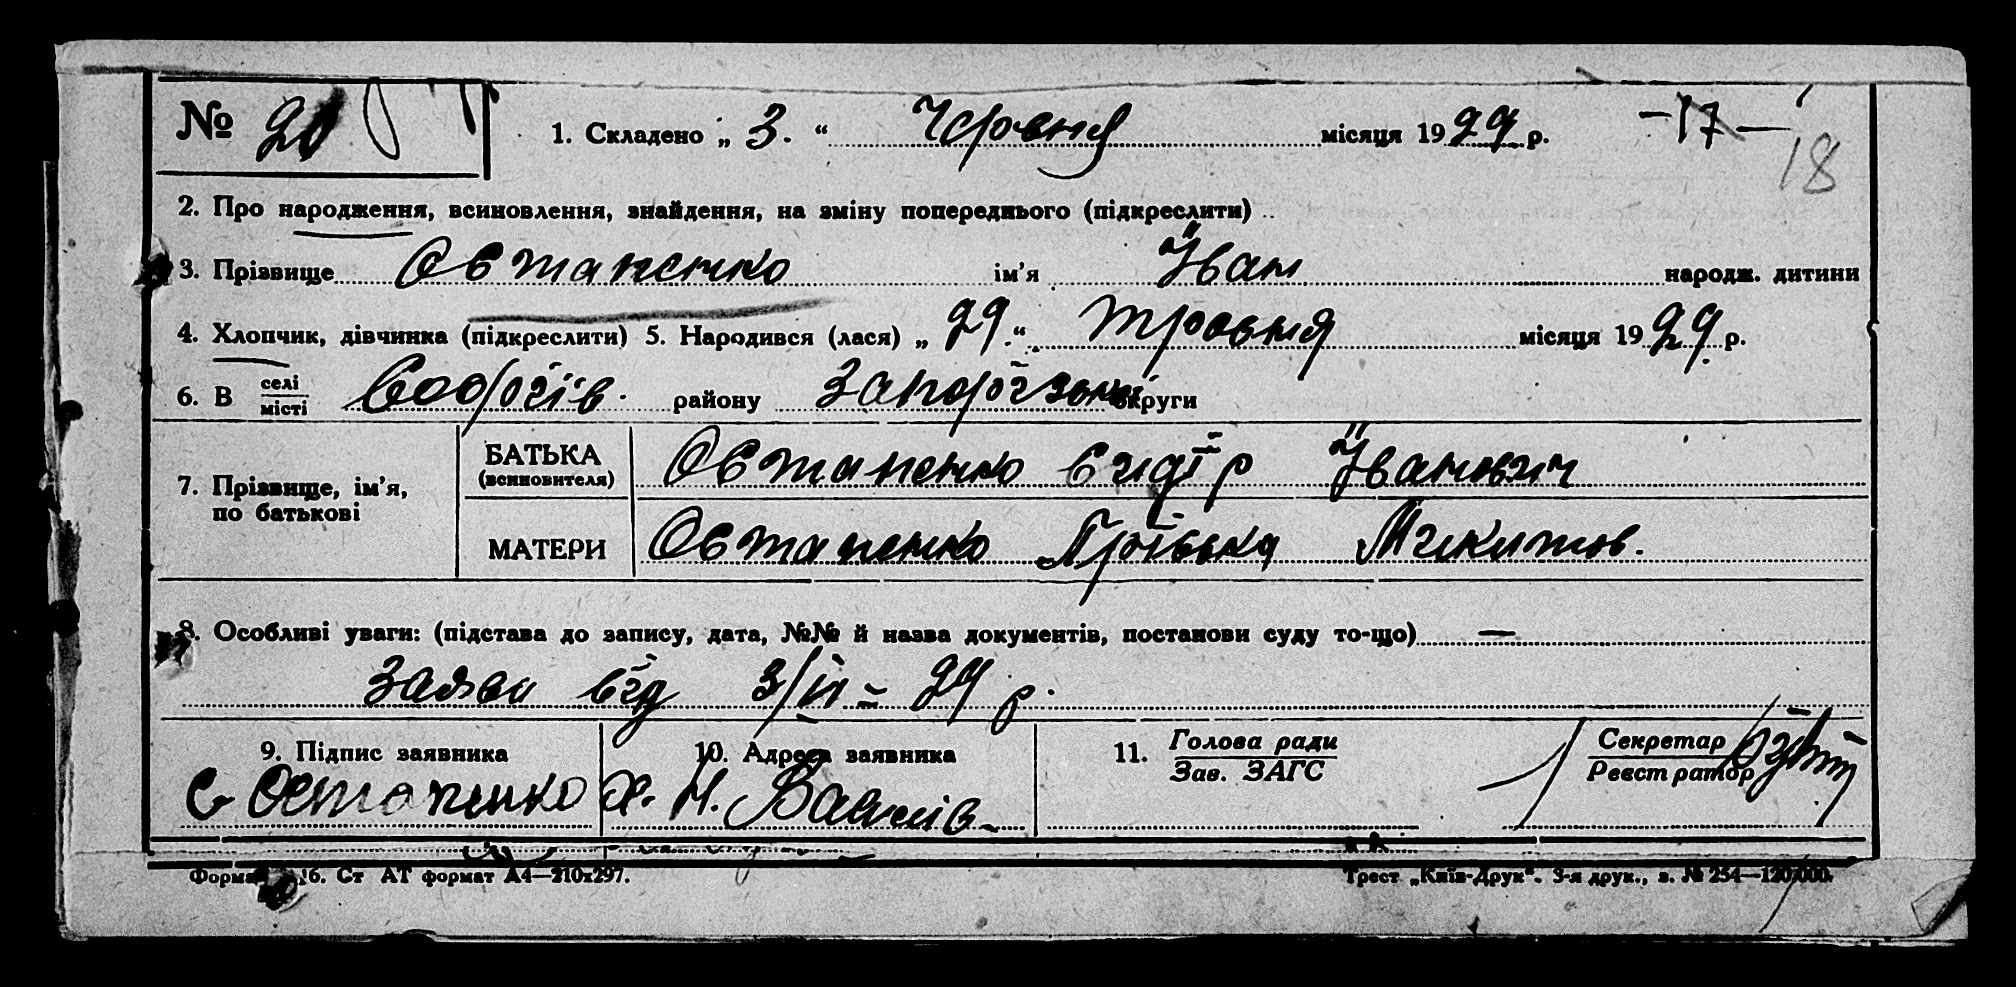 № 20
1. Складено „ 3. “ Червня місяця 1929 р. –17–
18
2. Про народження, всиновлення, знайдення, на зміну попереднього (підкреслити)
3. Прізвище Остапенко ім'я Іван народж. дитини
4. Хлопчик, дівчинка (підкреслити) 5. Народився (лася) „ 29. “ травня місяця 1929 р.
6. В селі місті району округи
7. Прізвище, ім'я, по батькові
БАТЬКА (всиновителя) Остапенко Сидір Іванович
МАТЕРИ Остапенко Микитов.
8. Особливі уваги: (підстава до запису, дата, №№ й назва документів, постанови суду то-що) —
Заява від 3/VI – 29 р.
9. Підпис заявника 10. Адреса заявника 11. Голова ради Зав. ЗАГС Секретар Реєстратор
С Остапенко х. Н.
Форма 16. Ст АТ формат А4—210х297. Трест „Київ-Друк“. 3-я друк., з. № 254—120.000.